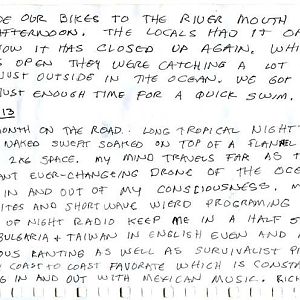 DE OUR BIKES TO THE RIVER MOUTH
FTERNOON. THE LOCALS HAD IT OP
OW IT HAS CLOSED UP AGAIN. WHI
S OPEN THEY WERE CATCHING A LOT
JUST OUTSIDE IN THE OCEAN. WE GOT
JUST ENOUGH TIME FOR A QUICK SWIM.
13
MONTH ON THE ROAD.. LONG TROPICAL NIGHT
NAKED SWEPT SOAKED ON TOP OF A FLANNEL
SPACE. MY MIND TRAVELS FAR AS T
ANT EVER-CHANGING DRONE OF THE OCE
IN AND OUT OF MY CONSCIOUSNESS. M
ITES AND SHORTWAVE WIERD PROGRAMING
OF NIGHT RADIO KEEP ME IN A HALF S
BULGARIA + TAIWAN IN ENGLISH EVEN AND A
OUS RANTING AS WELL AS SURVIVALIST PR
COAST TO COAST FAVORATE WHICH IS CONSTA
G IN AND OUT WITH MEXICAN MUSIC. RICH